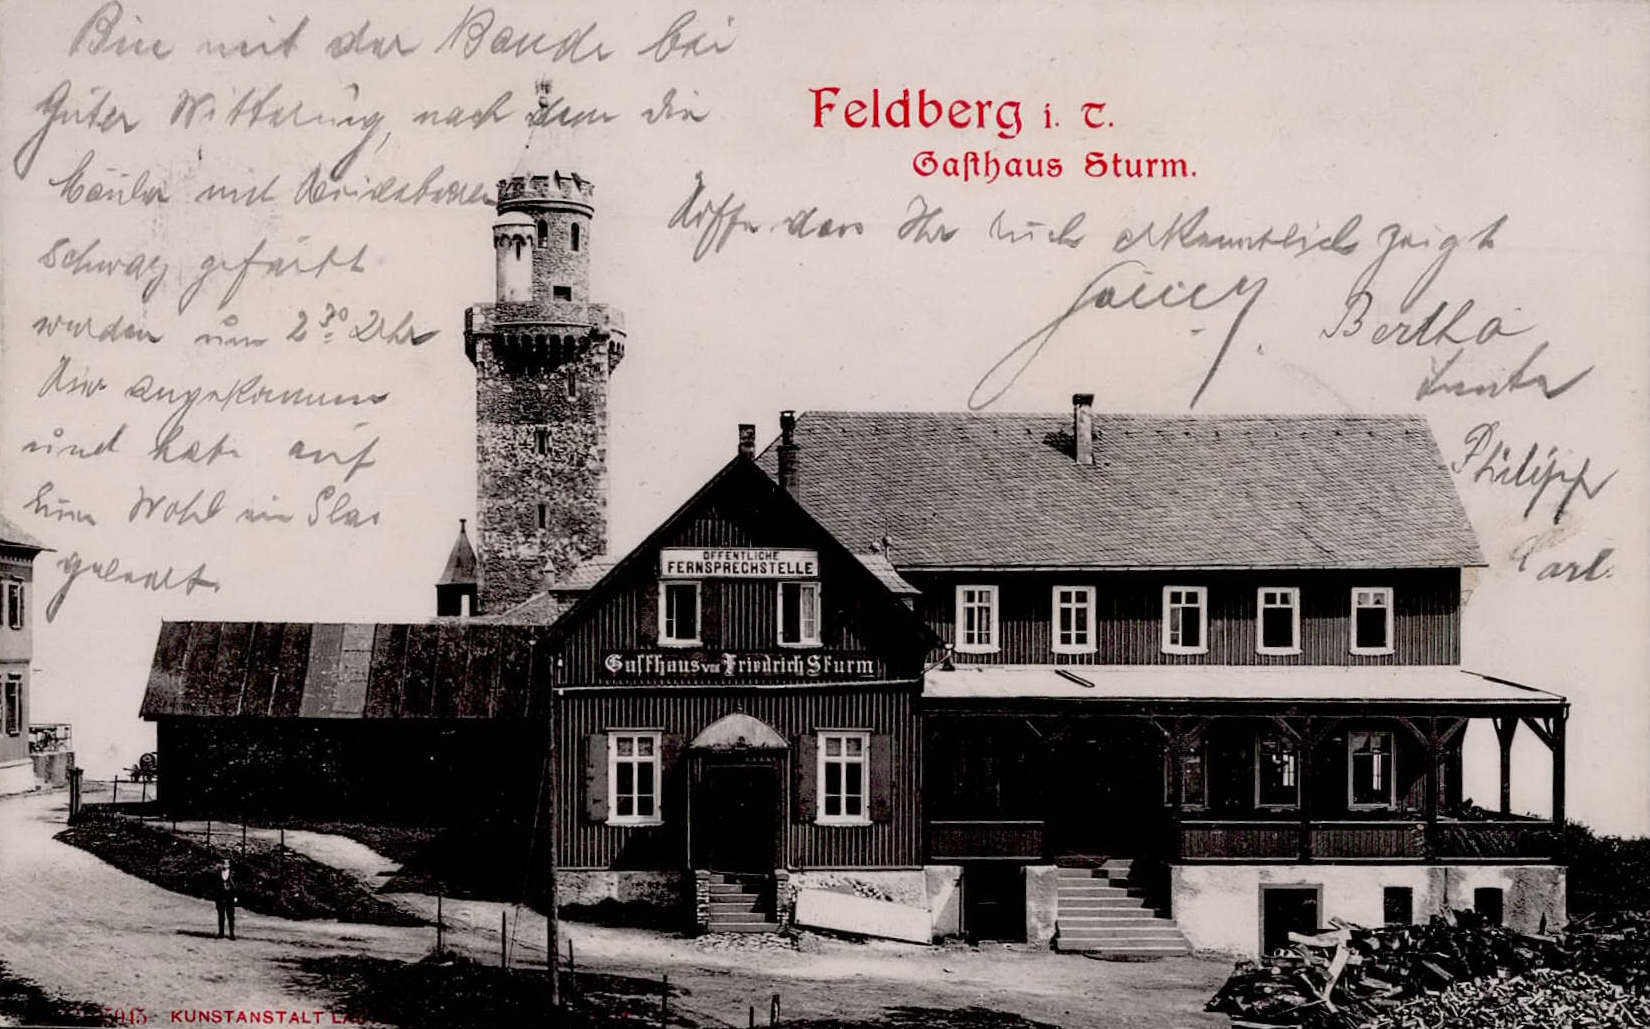 Bin mit der Bande bei
Guter Witterung, nach dem die
Mäuler mit Heidelbeeren
Schwarz gefärbt
wurden um 2 30 Uhr
hier angekommen
und habe auf
Euer Wohl ein Glas
geleert.
Feldberg i. T.
Gasthaus Sturm.
Hoffe dass Ihr Euch erkenntlich zeigt
Bertha
Philipp
Carl.
ÖFFENTLICHE
FERNSPRECHSTELLE
Gasthaus von Friedrich Sturm
KUNSTANSTALT